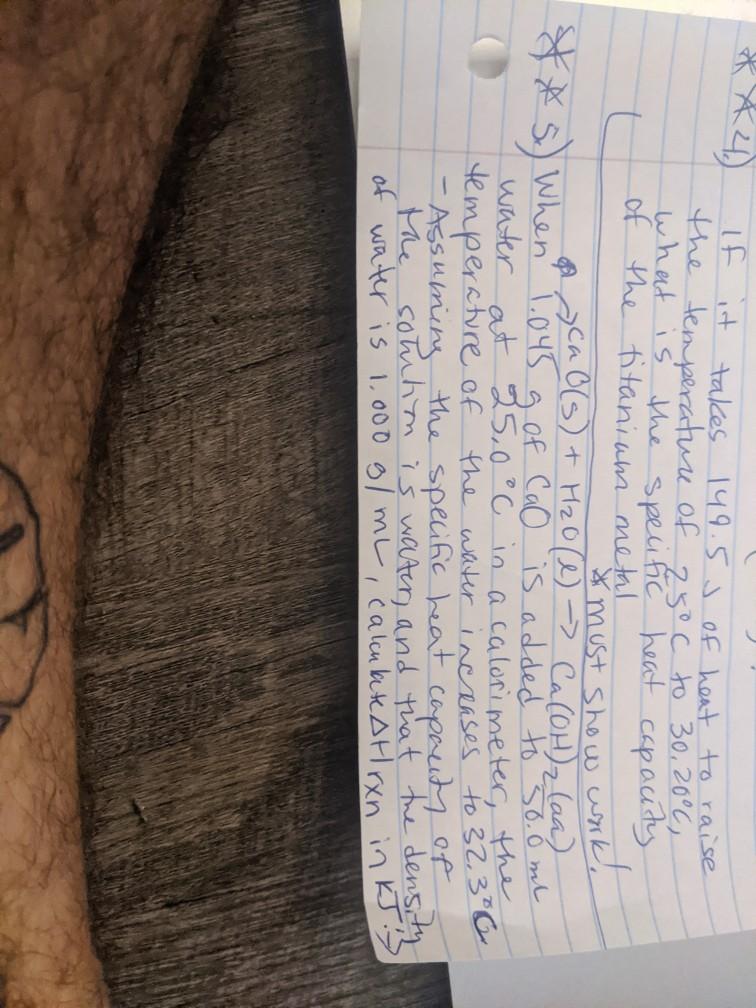 ** 4.) If it takes 149.5 J of heat to raise
the temperature of 25°C to 30.20°C,
what is the specific heat capacity
of the titanium metal
*must show work!
→CaO(s) + H2O(l) -> Ca(OH)2(aq)
** 5.) When 1.045 g of CaO is added to 50.0 ml
water at 25.0°C in a calorimeter, the
temperature of the water increases to 32.3°C
- Assuming the specific heat capacity of
the solution is water, and that the density
of water is 1.000 g/mL, calculate ΔHrxn in kJ. →